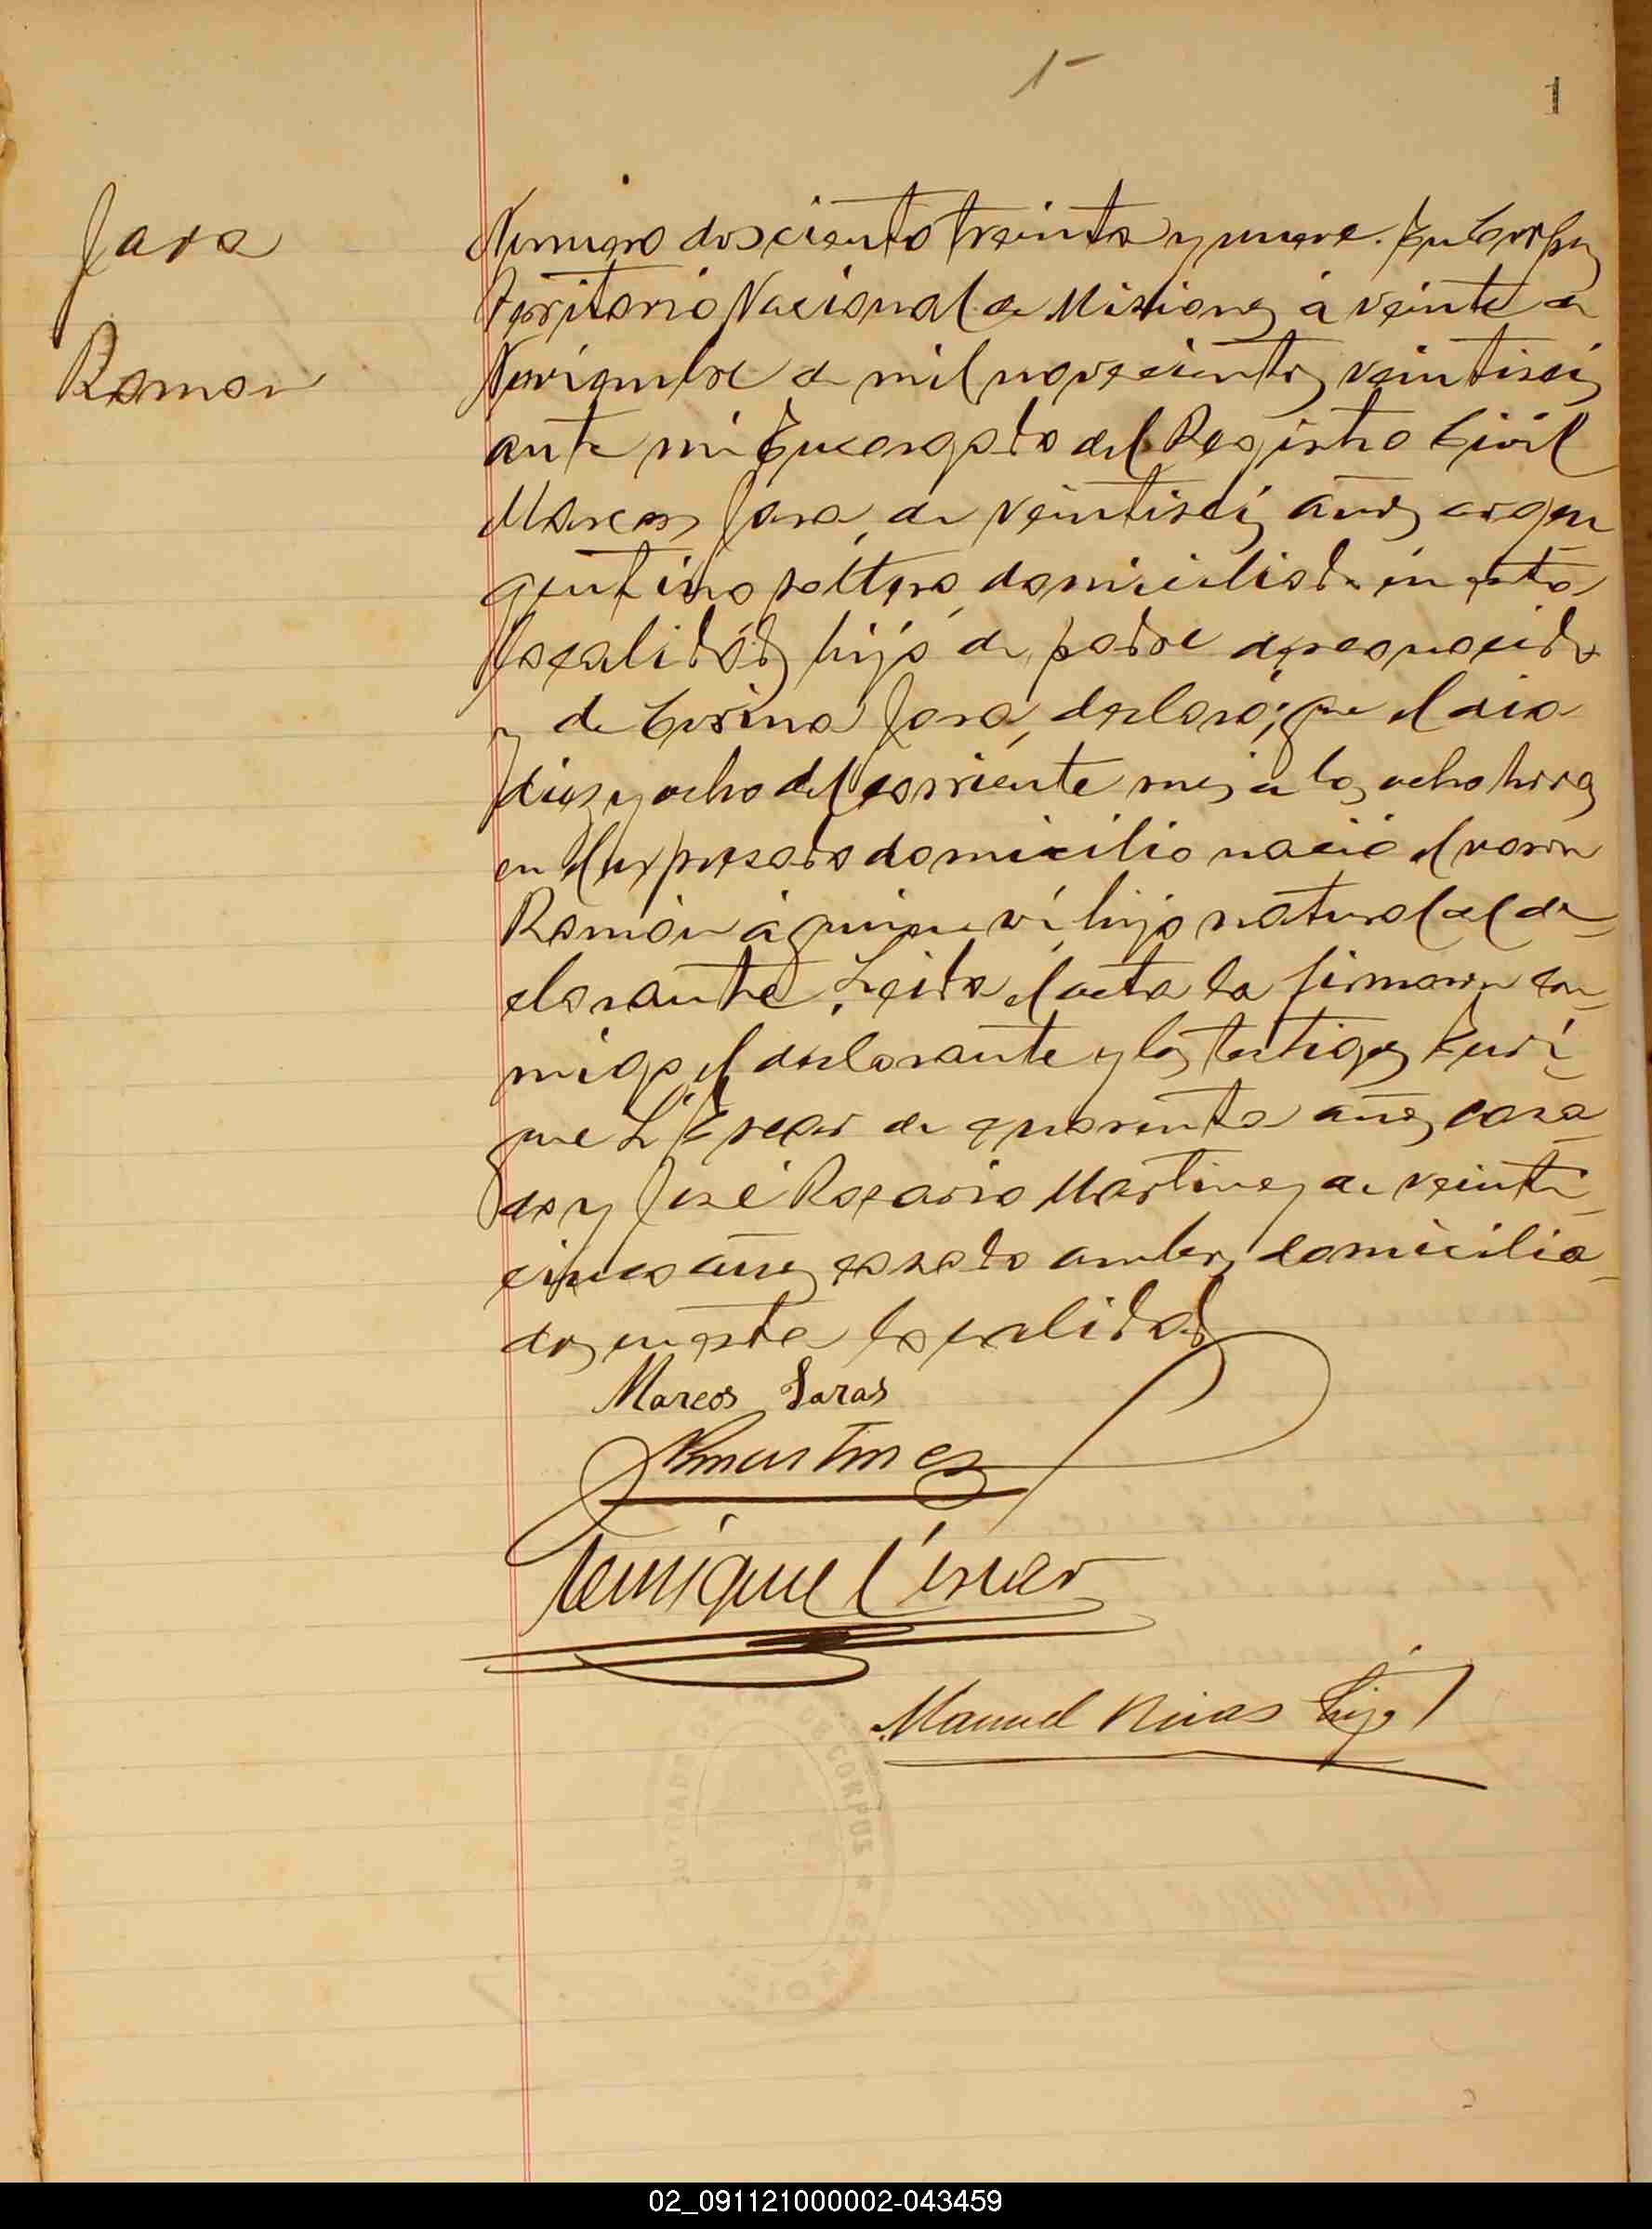 1
1
Jara
Ramon
Numero doscientos treinta y nueve. En Corpus
Territorio Nacional de Misiones á veinte de
Noviembre de mil novecientos veintiseis
ante mi Encargado del Registro Civil
Marcos Jara, de veintiseis años argen
gentino soltero, domiciliado en esta
localidad, hijo de padre desconocido
y de Corina Jara, declaró; que el dia
diez y ocho del corriente mes a las ocho horas
en el expresado domicilio nació el varon
Ramón á quien ví hijo natural del de-
clarante. Leida el acta la firmaron con-
migo el declarante y los testigos Enri-
que de cuarenta años, casa-
do y José Rosario Martinez de veinti-
cinco años casado ambos domicilia-
dos en esta localidad
Marcos Jaras
Rmartinez
Henrique
Manuel Rivas hijo
JUZGADO DE CORPUS
02_091121000002-043459